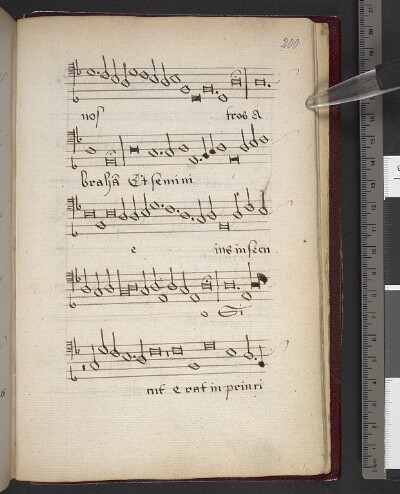 200
nos tros a
brahã Et semini
e ius in secu
o Si
cut erat in princi